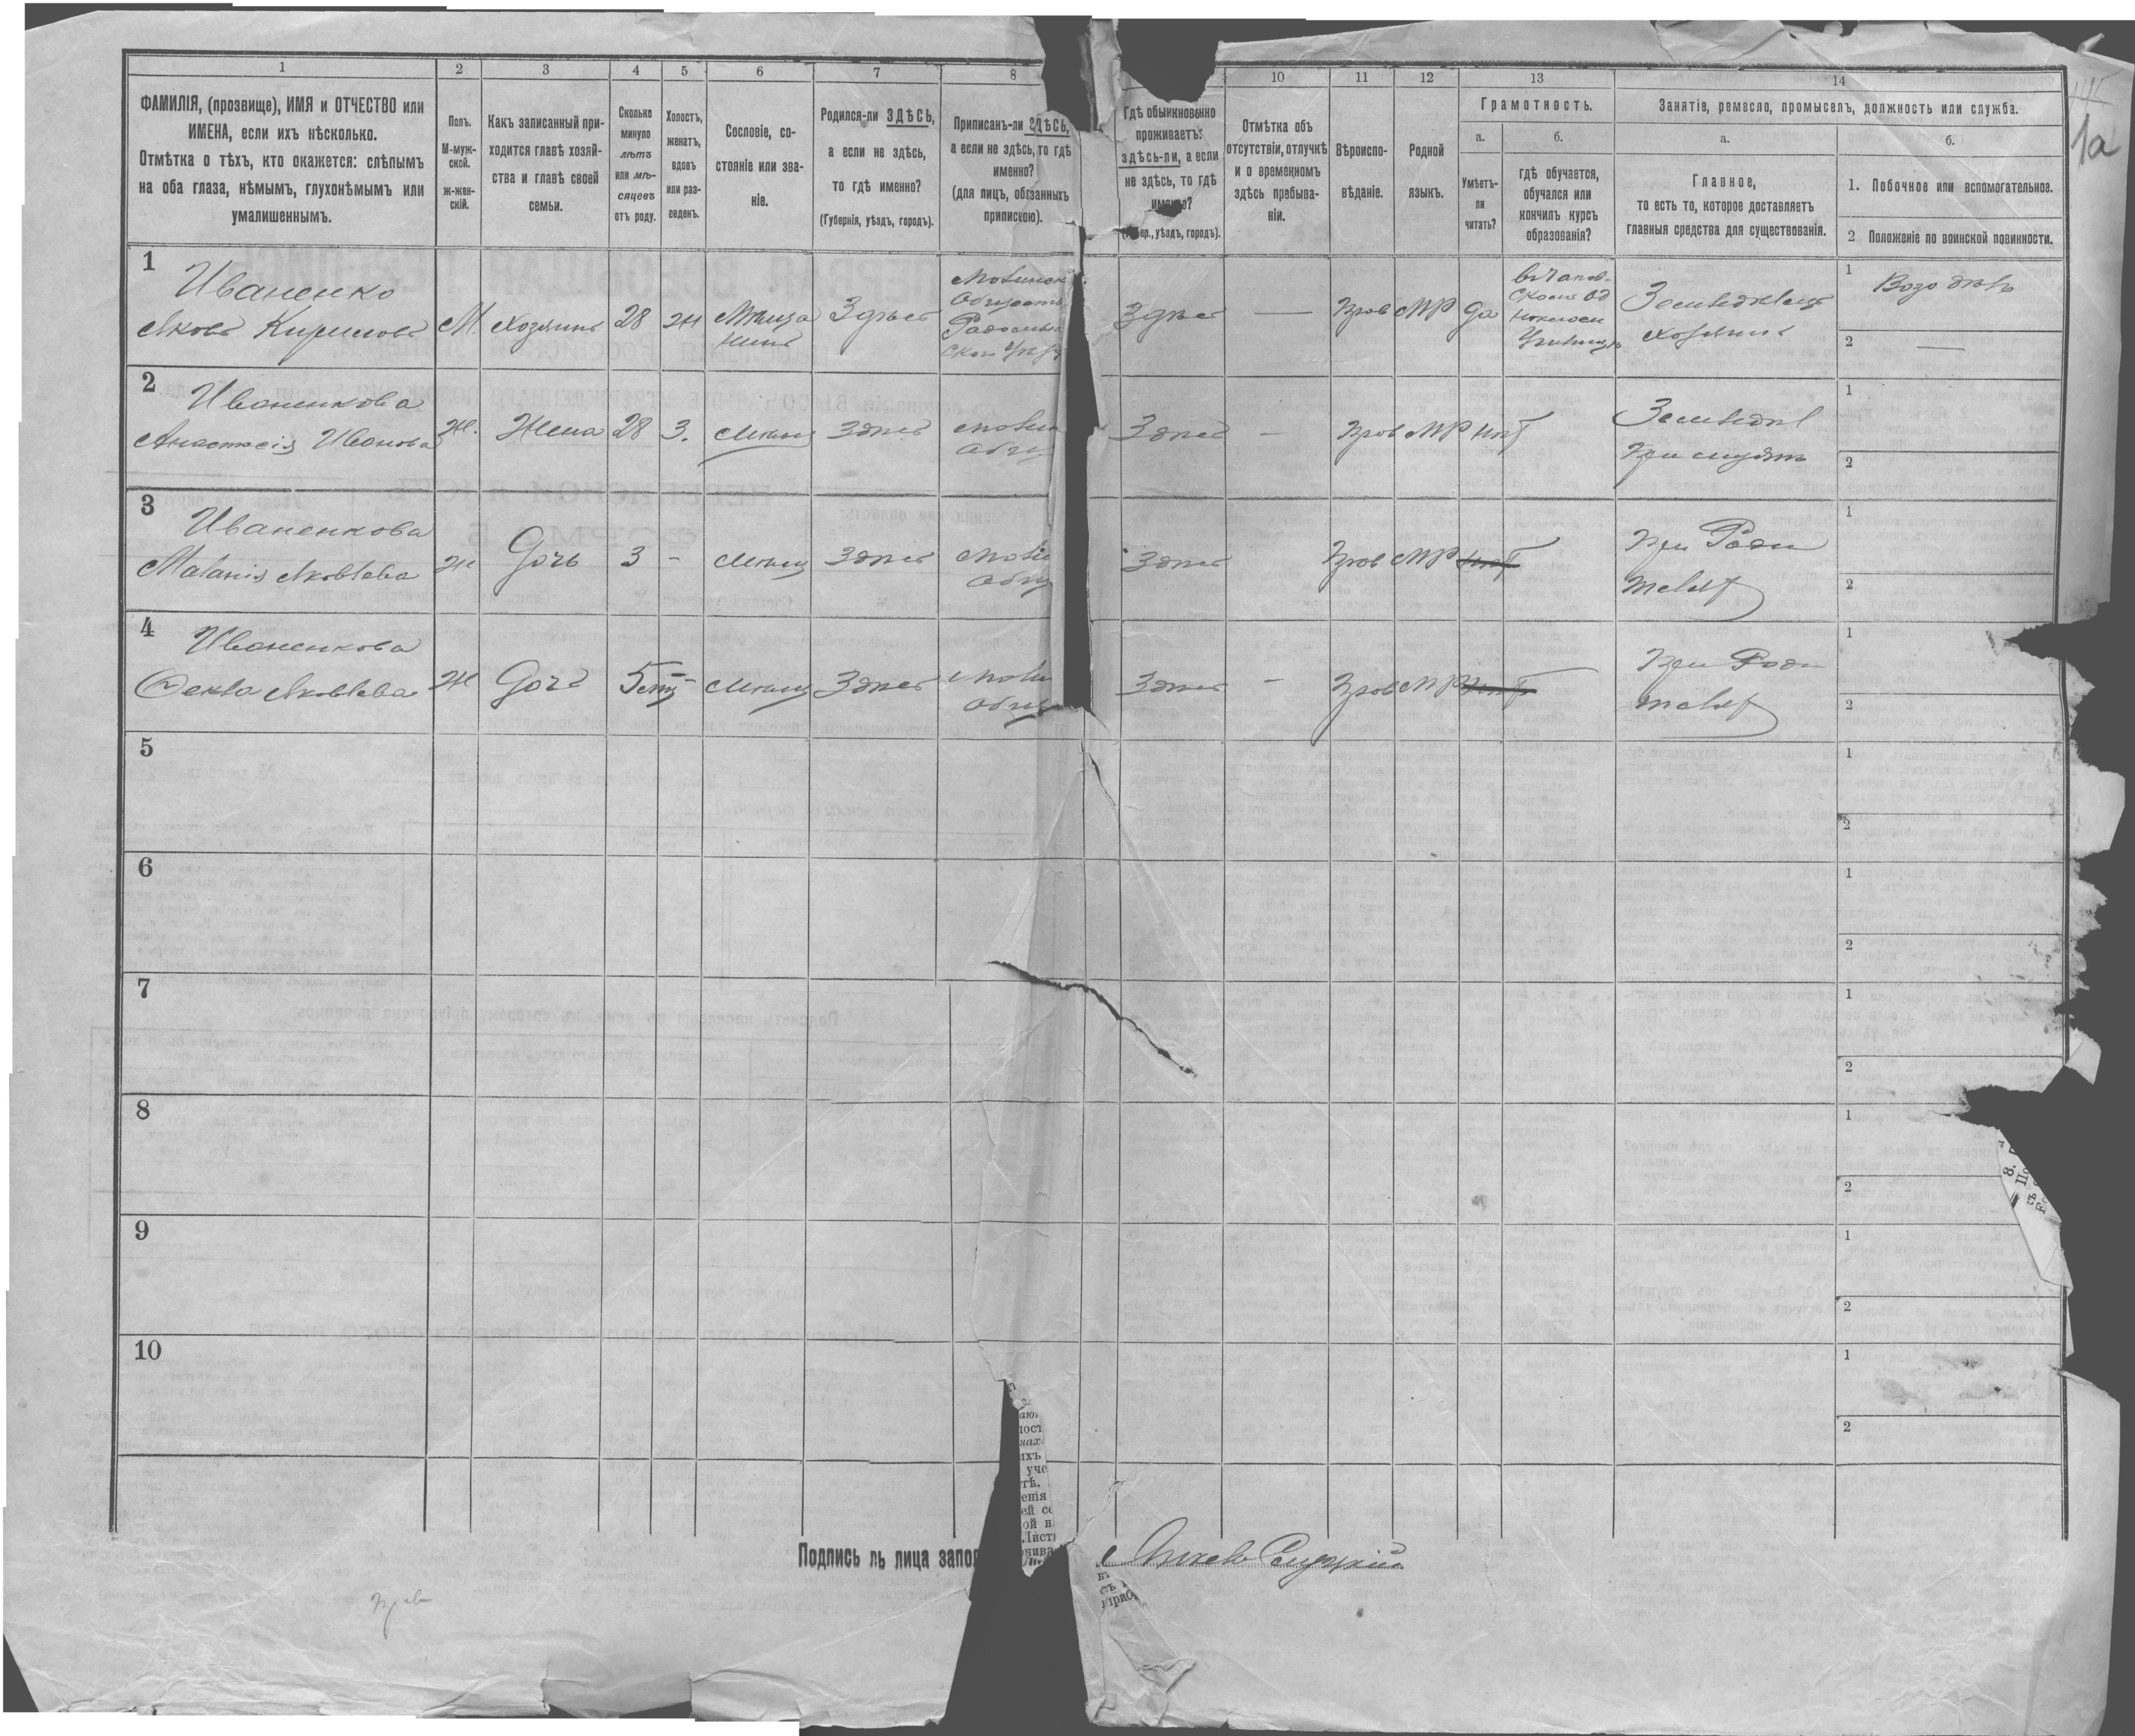 1 2 3 4 5 6 7 8 10 11 12 13 14
ФАМИЛІЯ, (прозвище), ИМЯ и ОТЧЕСТВО или
ИМЕНА, если ихъ нѣсколько.
Отмѣтка о тѣхъ, кто окажется: слѣпымъ
на оба глаза, нѣмымъ, глухонѣмымъ или
умалишеннымъ.
Полъ.
М-муж-
ской.
ж-жен-
скій.
Какъ записанный при-
ходится главѣ хозяй-
ства и главѣ своей
семьи.
Сколько
минуло
лѣтъ
или мѣ-
сяцевъ
отъ роду.
Холостъ,
женатъ,
вдовъ
или раз-
веденъ.
Сословіе, со-
стояніе или зва-
ніе.
Родился-ли ЗДѢСЬ,
а если не здѣсь,
то гдѣ именно?
(Губернія, уѣздъ, городъ).
Приписанъ-ли ЗДѢСЬ,
а если не здѣсь, то гдѣ
именно?
(для лицъ, обязанныхъ
припискою).
Гдѣ обыкновенно
проживаетъ:
здѣсь-ли, а если
не здѣсь, то гдѣ
именно?
уѣздъ, городъ).
Отмѣтка объ
отсутствіи, отлучкѣ
и о временномъ
здѣсь пребыва-
ніи.
Вѣроиспо-
вѣданіе.
Родной
языкъ.
Грамотность.
а. б.
Умѣетъ-
ли
читать?
гдѣ обучается,
обучался или
кончилъ курсъ
образованія?
Занятіе, ремесло, промыселъ, должность или служба.
а. б.
Главное,
то есть то, которое доставляетъ
главныя средства для существованія.
1. Побочное или вспомогательное.
2 Положеніе по воинской повинности.
1а
1
Иваненко
Яковъ Кириловъ М. Хозяинъ 28 Ж Мѣща
нинъ Здѣсь
Здѣсь — Прав МР да
Хозяинъ
1
2 —
2
Иваненкова
Анастасія Иванова Ж. Жена 28 З. Мѣщ Здѣсь
Здѣсь — Прав МР нѣт
Земледѣл
При мужѣ
1
2
3
Иваненкова
Маланія Яковлева Ж Дочь 3 - Мѣщ Здѣсь
Здѣсь Прав МР нѣт
При Роди
телях
1
2
4
Иваненкова
Фекла Яковлева Ж Дочь 5 мц - Мѣщ Здѣсь
Здѣсь — Прав МР нѣт
При Роди
телях
1
2
5
1
2
6
1
2
7
1
2
8
1
2
9
1
2
10
1
2
Подпись лица запол